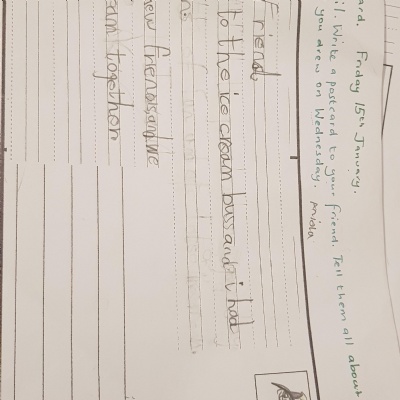 ard. Friday 15th January.
il. Write a postcard to your friend. Tell them all about
you drew on Wednesday. Aniola
Friend
to the ice cream buss and i had
new friends and we
am together